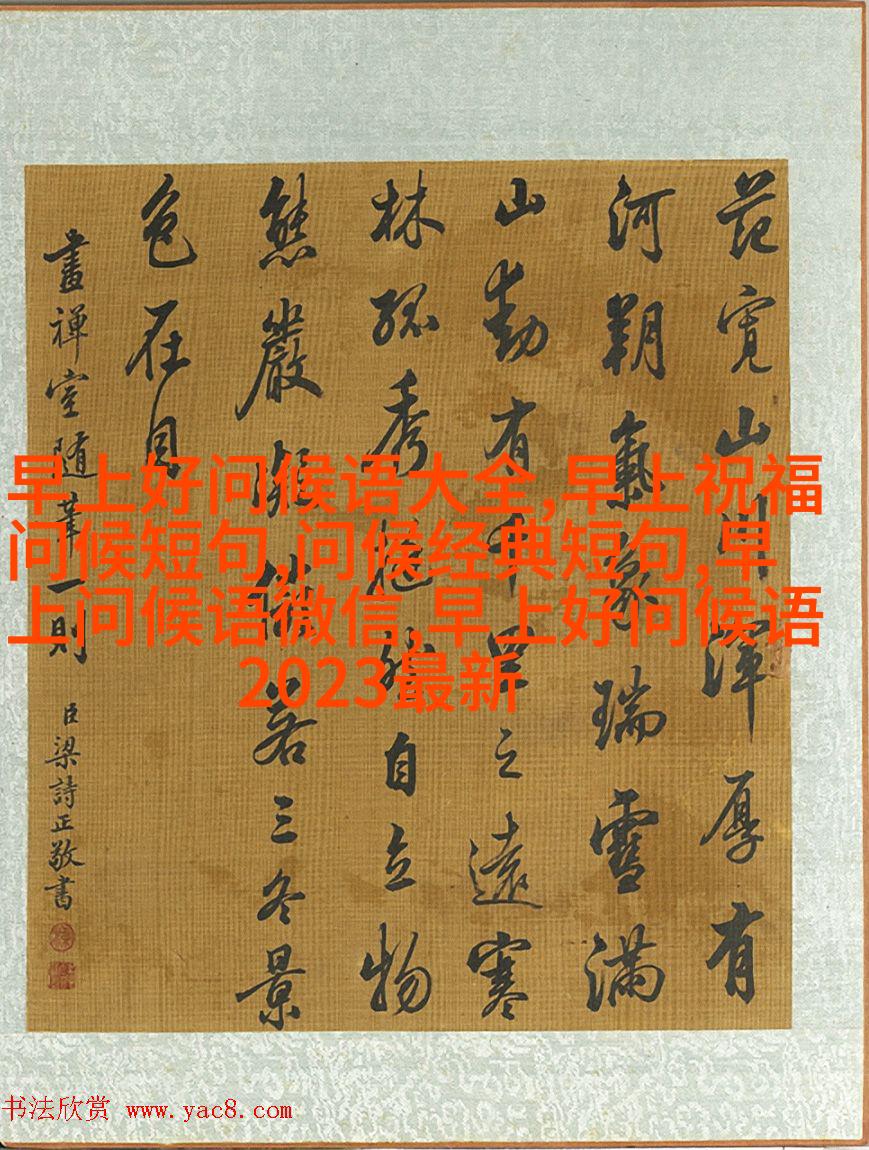 范寬山川渾厚有
河朔氣象瑞雪滿
山動有千里之遠寒
林孤秀挺然自立物
態嚴凝儼若三冬景
色在目
畫禪室隨筆一則 臣梁詩正敬書
早上好问候语大全,早上祝福
问候短句,问候经典短句,早
上问候语微信,早上好问候语
2023最新
书法欣赏 www.yac8.com